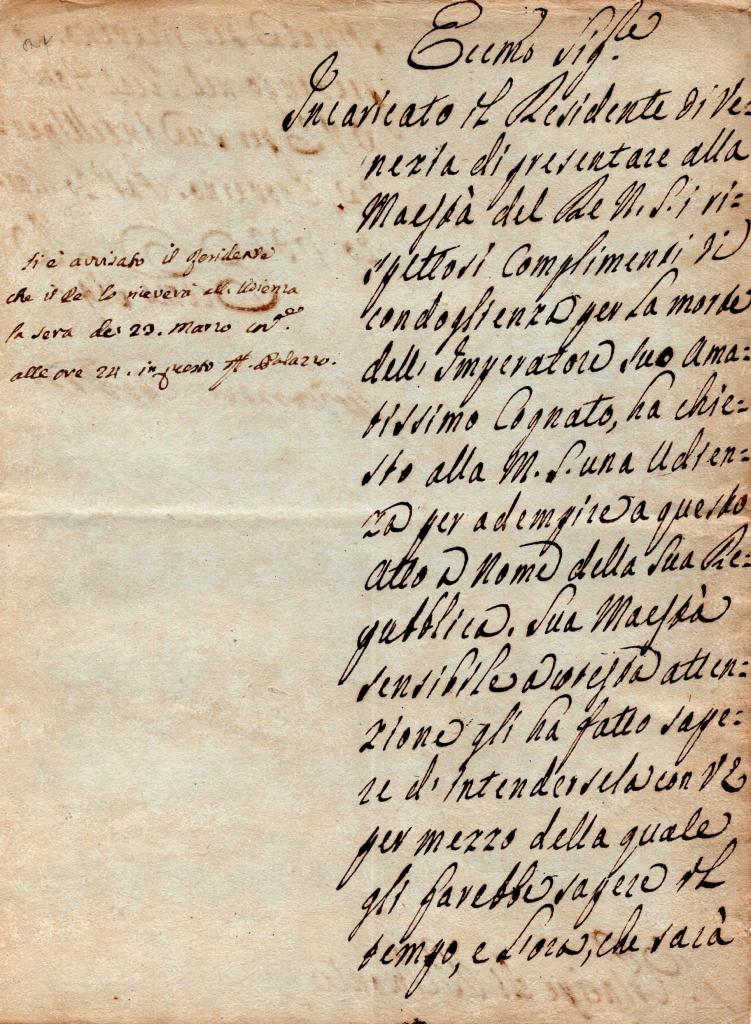 Eccmo Sig.re
Incaricato il Residente di Ve=
nezia di presentare alla
Maestà del Re N. S. i ri=
spettosi Complimenti di
condoglienza per la morte
dell' Imperatore suo Ama=
tissimo Cognato, ha chie=
sto alla M. S. una Udien=
za per adempire a questo
Atto a Nome della sua Re=
pubblica. Sua Maestà
sensibile a cotesta atten=
zione gli ha fatto sape=
re d' intendersela con VE
per mezzo della quale
gli farebbe sapere il
tempo, e l'ora, che sarà
Si è avvisato il Residente
che il Re lo riceverà all. Udienza
la sera de' 23. Marzo cor.te
alle ore 24. in questo Palazzo.